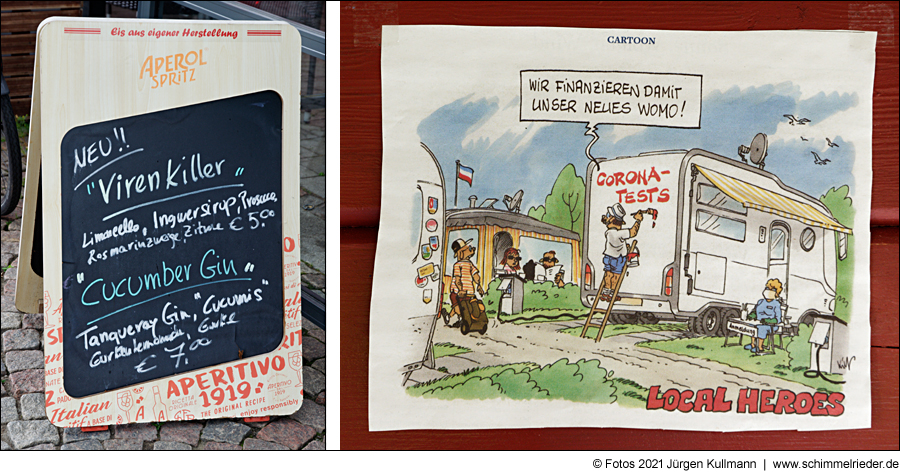 Eis aus eigener Herstellung
APEROL
SPRITZ
NEU!!
"Virenkiller"
Limoncello, Ingwersirup, Prosecco,
Rosmarinzweig, Zitrone € 5,00
"Cucumber Gin"
Tanqueray Gin, "Cucumis"
Gurkenlemonade, Gurke
€ 7,00
APERITIVO
1919
THE ORIGINAL RECIPE
enjoy responsibly
Italian
CARTOON
WIR FINANZIEREN DAMIT
UNSER NEUES WOMO!
CORONA-
TESTS
LOCAL HEROES
© Fotos 2021 Jürgen Kullmann | www.schimmelrieder.de